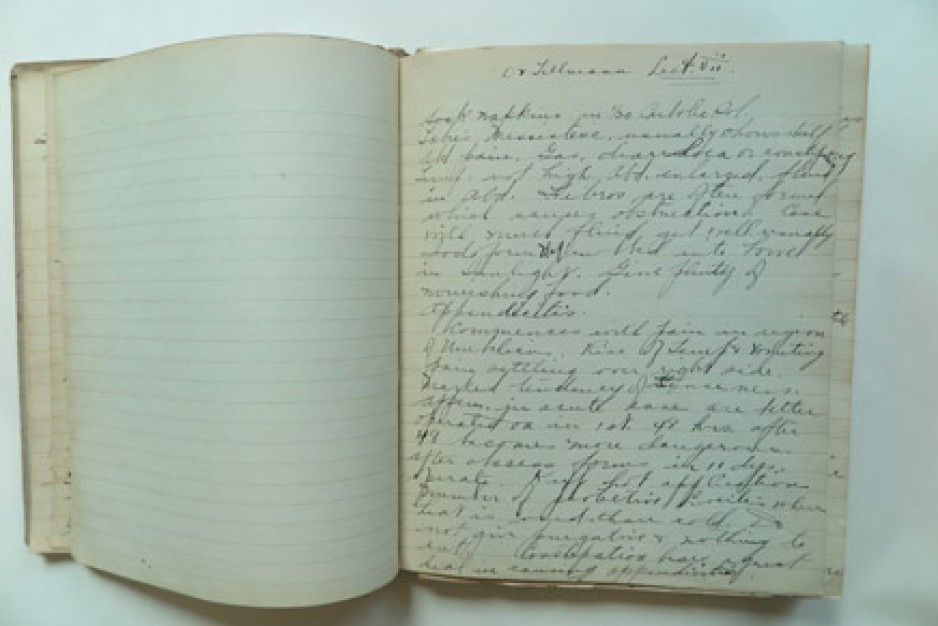 Dr Tillmann Lect. VII.
Soak napkins in 1/20 Carbolic Sol.
Tabes Mesenterica, usually shows itself
Abd pain, Gas, diarrhoea or constip
Temp. not high, Abd. enlarged, fluid
in Abd. Fibros are often formed
which causes obstruction. Case
with much fluid get well usually
Iodoform in
in sunlight. Give plenty of
nourishing food.
Appendicitis.
Commences with pain in region
of Umbilicus. Rise of Temp & Vomiting
Pain settling over right side.
Marked tendency of tense mus.
in acute case are better
operated on in 1st 48 hrs. after
48 becomes more dangerous
after abscess forms in 11 dys.
Keep hot applications
number of
heat is used than cold. Do
not give purgative & nothing to
eat. Constipation has great
deal in causing appendicitis.